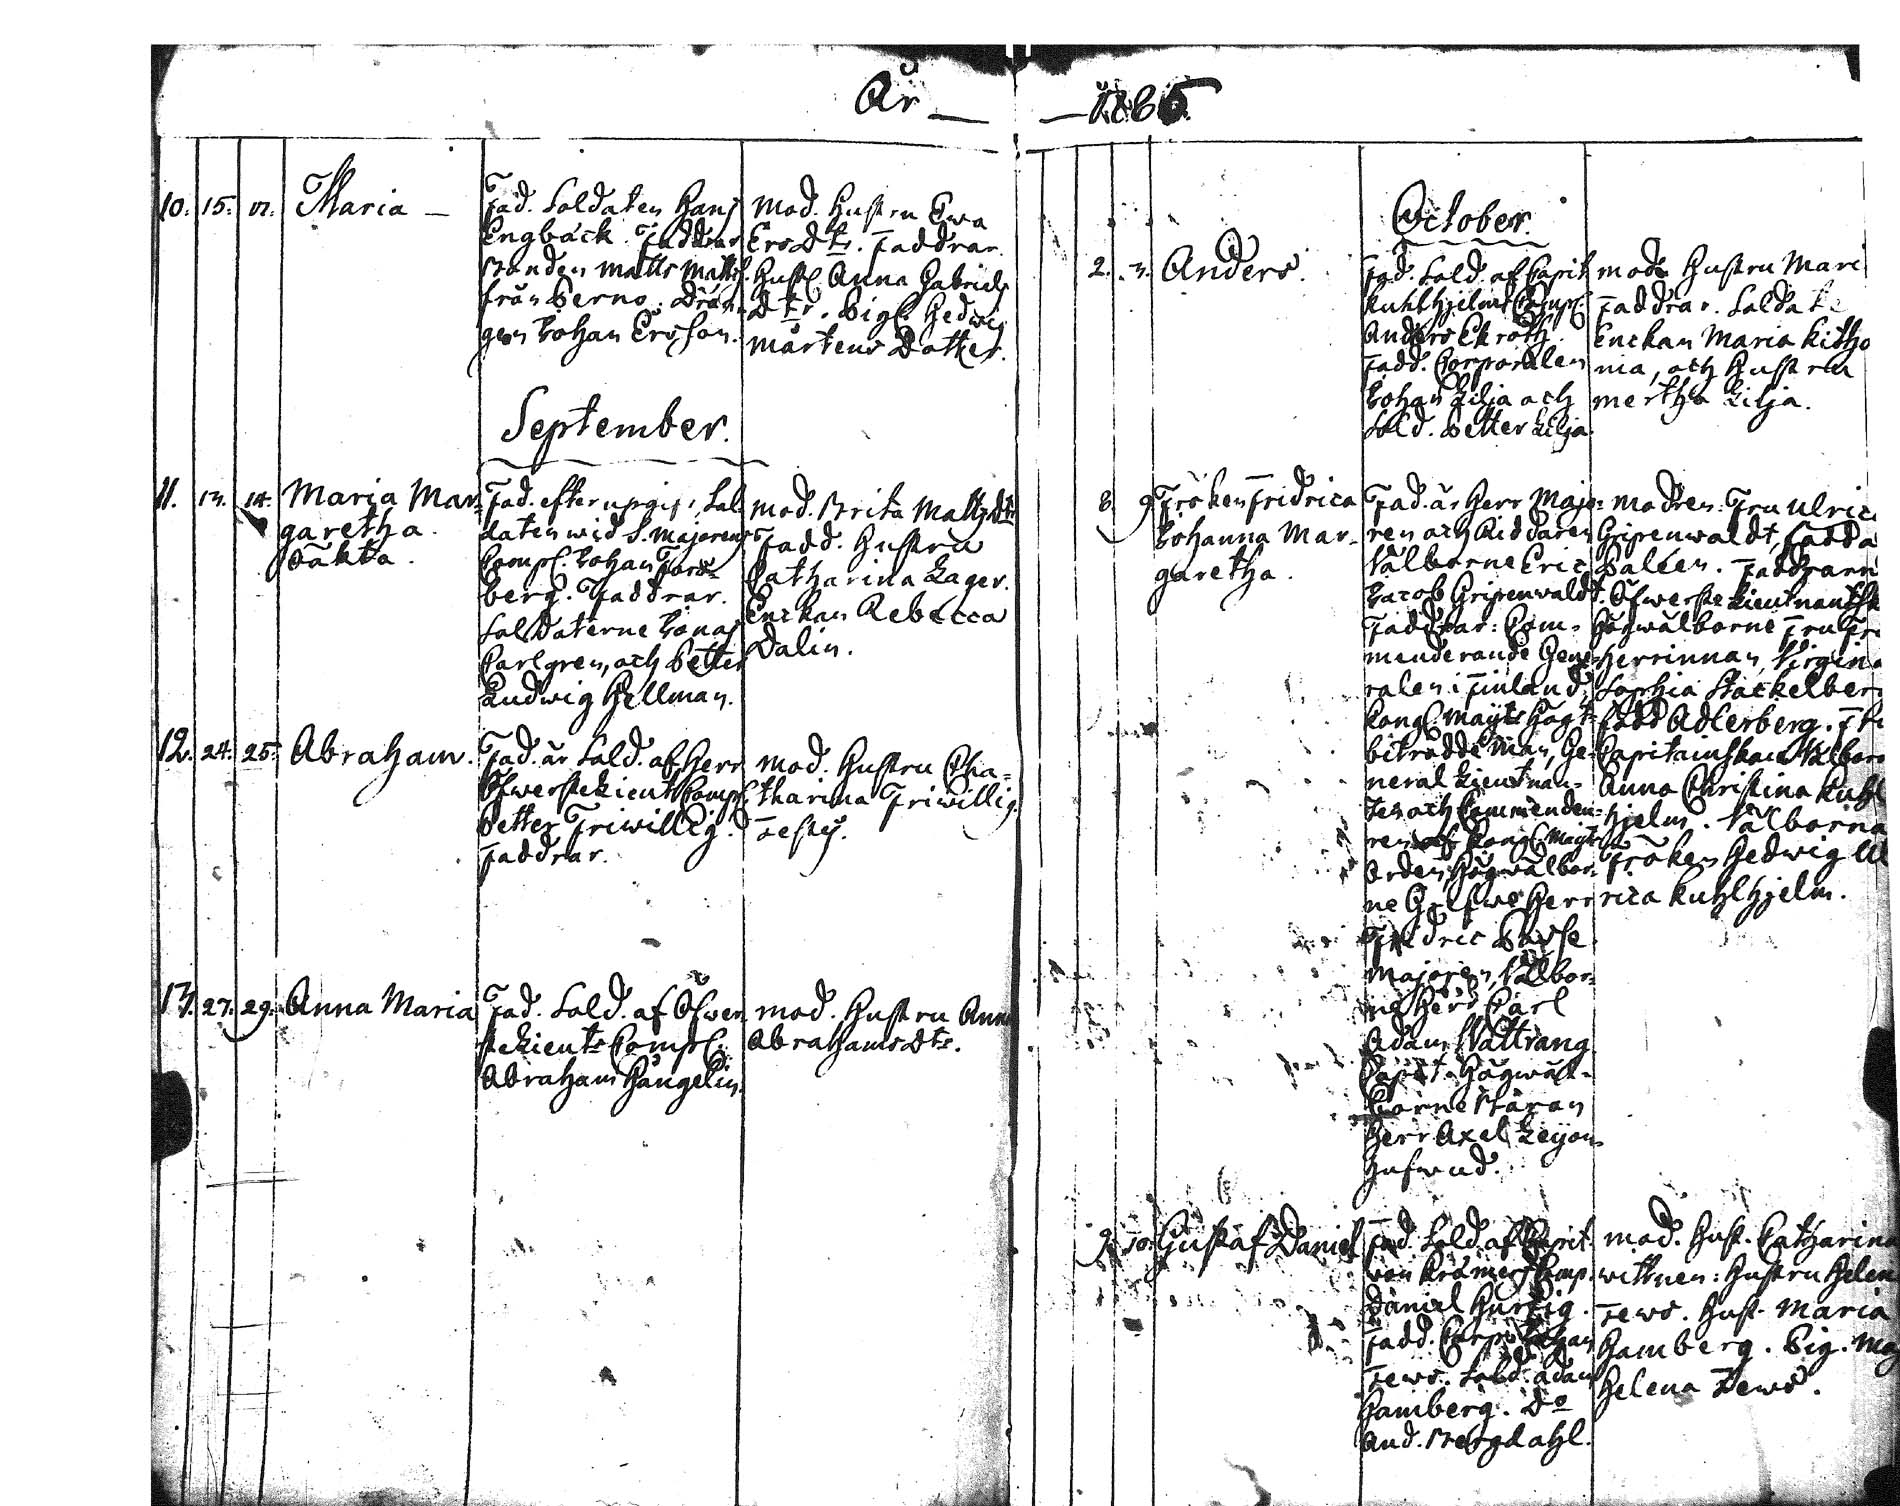 År
10. 15. 17. Maria —
Fad. Soldaten Hans
Engbäck. Faddrar
Bonden Matts Matts.
från Perno. Drän-
gen Johan Ersson.
Mod. Hustru Ewa
Ersdtr. Faddrar.
Hust. Anna Gabriels
Dtr. Pig. Hedwig
Mårtens Dotter.
September.
11. 13. 14. Maria Mar-
garetha.
Oäkta.
Fad. efter upgift: Sol-
daten wid S. Majorens
Comp. Johan Fors-
berg. Faddrar.
Soldaterne Jonas
Carlgren, och Petter
Ludwig Hellman.
mod. Brita Mattsdtr
Fadd. Hustru
Catharina Lager.
Enckan Rebecca
Dalin.
12. 24. 25. Abraham.
Fad. är Sold. af Herr
Öfwerste Lieut. Comp.
Petter Friwillig.
Faddrar.
mod. Hustru Cha-
tharina Friwillig.
13. 27. 29. Anna Maria
Fad. Sold. af Öfwer
ste Lieuts Comp.
Abraham Hångelin.
mod. Hustru Anna
Abrahamsdtr.
October.
2. 3. Anders.
Fad. Sold. af Capit
Kuhlhjelms Comp.
Anders Ekroth.
Fadd. Corporalen
Johan Lilja och
Sold. Petter Lilja.
mod. Hustru Mari
Faddrar. Soldate
Enckan Maria
nia, och Hustru
Mertha Lilja.
8. 9. Fröken Fridrica
Johanna Mar-
garetha.
Fad. är Herr Majo-
ren och Riddaren
Välborne Eric
Jacob Gripenwaldt.
Faddrar: Com-
menderande Gene-
ralen i Finland,
Kongl. Mayts Högt-
betrodde Man, Ge-
neral Lieutnan-
ten och Commendeu-
ren af Kongl. Mayts
Orden, Högwälbor-
ne Grefwe Herr
Fridric Posse
Majoren, Välbor-
ne Herr Carl
Adam Wattrang
Capit. Högwäl-
borne Baron
Herr Axel Leyon-
hufwud.
modren: Fru Ulrica
Gripenwaldt, född
Paléen. Faddrarn
Öfwerste Lieutnantsk
Högwälborne Fru Fri
herrinnan, Virgina
Sophia Stackelberg
född Adlerberg. Fru
Capitainskan Välborn
Anna Christina Kuhl
hjelm. Välborna
Fröken Hedwig Ul
rica Kuhlhjelm.
9. 10. Gustaf Daniel
Fad. Sold. af Capit.
von Kræmers Comp.
Daniel Hurtig.
Fadd. Corp. Johan
Tews. Sold. Adam
Hamberg. Do
And. Bergdahl.
mod. Hust. Catharina
wittnen: Hustru Helen
Tews. Hust. Maria
Hamberg. Pig. Ma
Helena Tews.